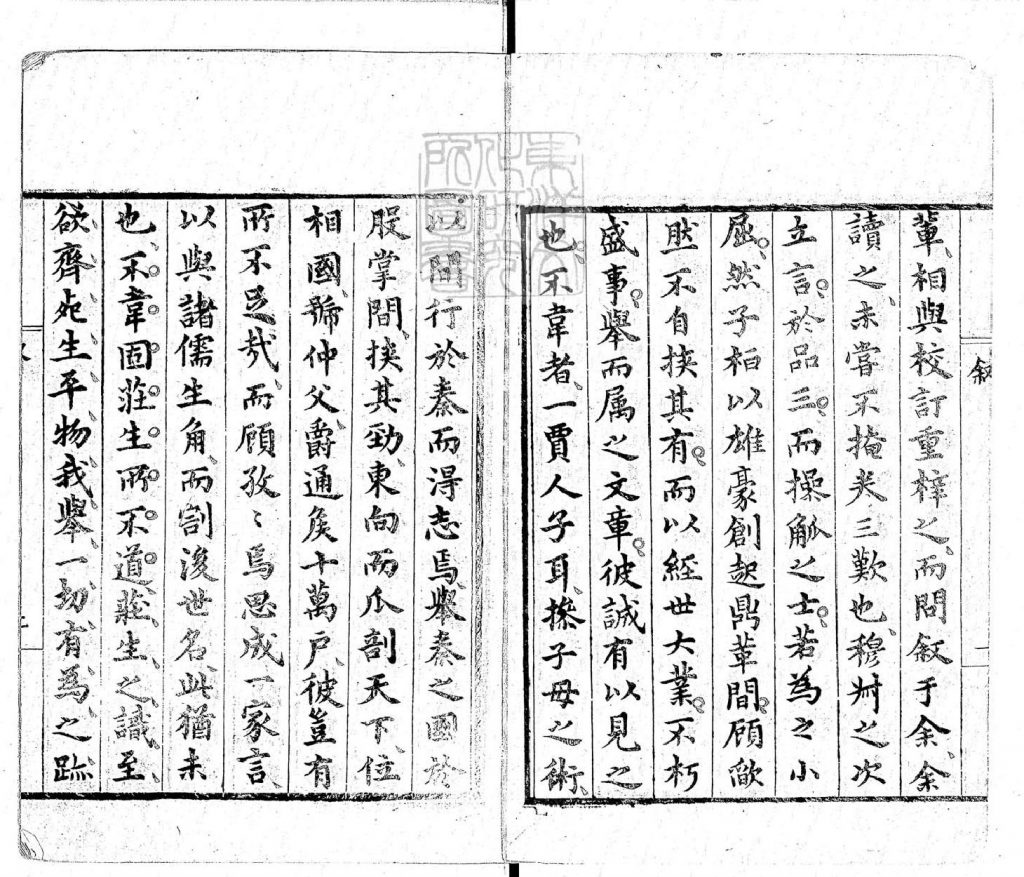 叙
一
輩相與校訂重梓之而問叙于余余
讀之未嘗不掩卷三歎也穆叔之次
立言於品三而操觚之士若為之小
屈然子栢以雄豪創起鼎革間顧欿
然不自挾其有而以經世大業不朽
盛事舉而属之文章彼誠有以見之
也不韋者一賈人子耳操子母之術
以間行於秦而淂志焉舉秦之國於
股掌間挾其勁東向而瓜剖天下位
相國號仲父爵通矦十萬戶彼豈有
所不足哉而顧孜〻焉思成一家言
以與諸儒生角而割後世名此猶未
也不韋固莊生所不道莊生之識至
欲齊死生平物我舉一切有為之跡